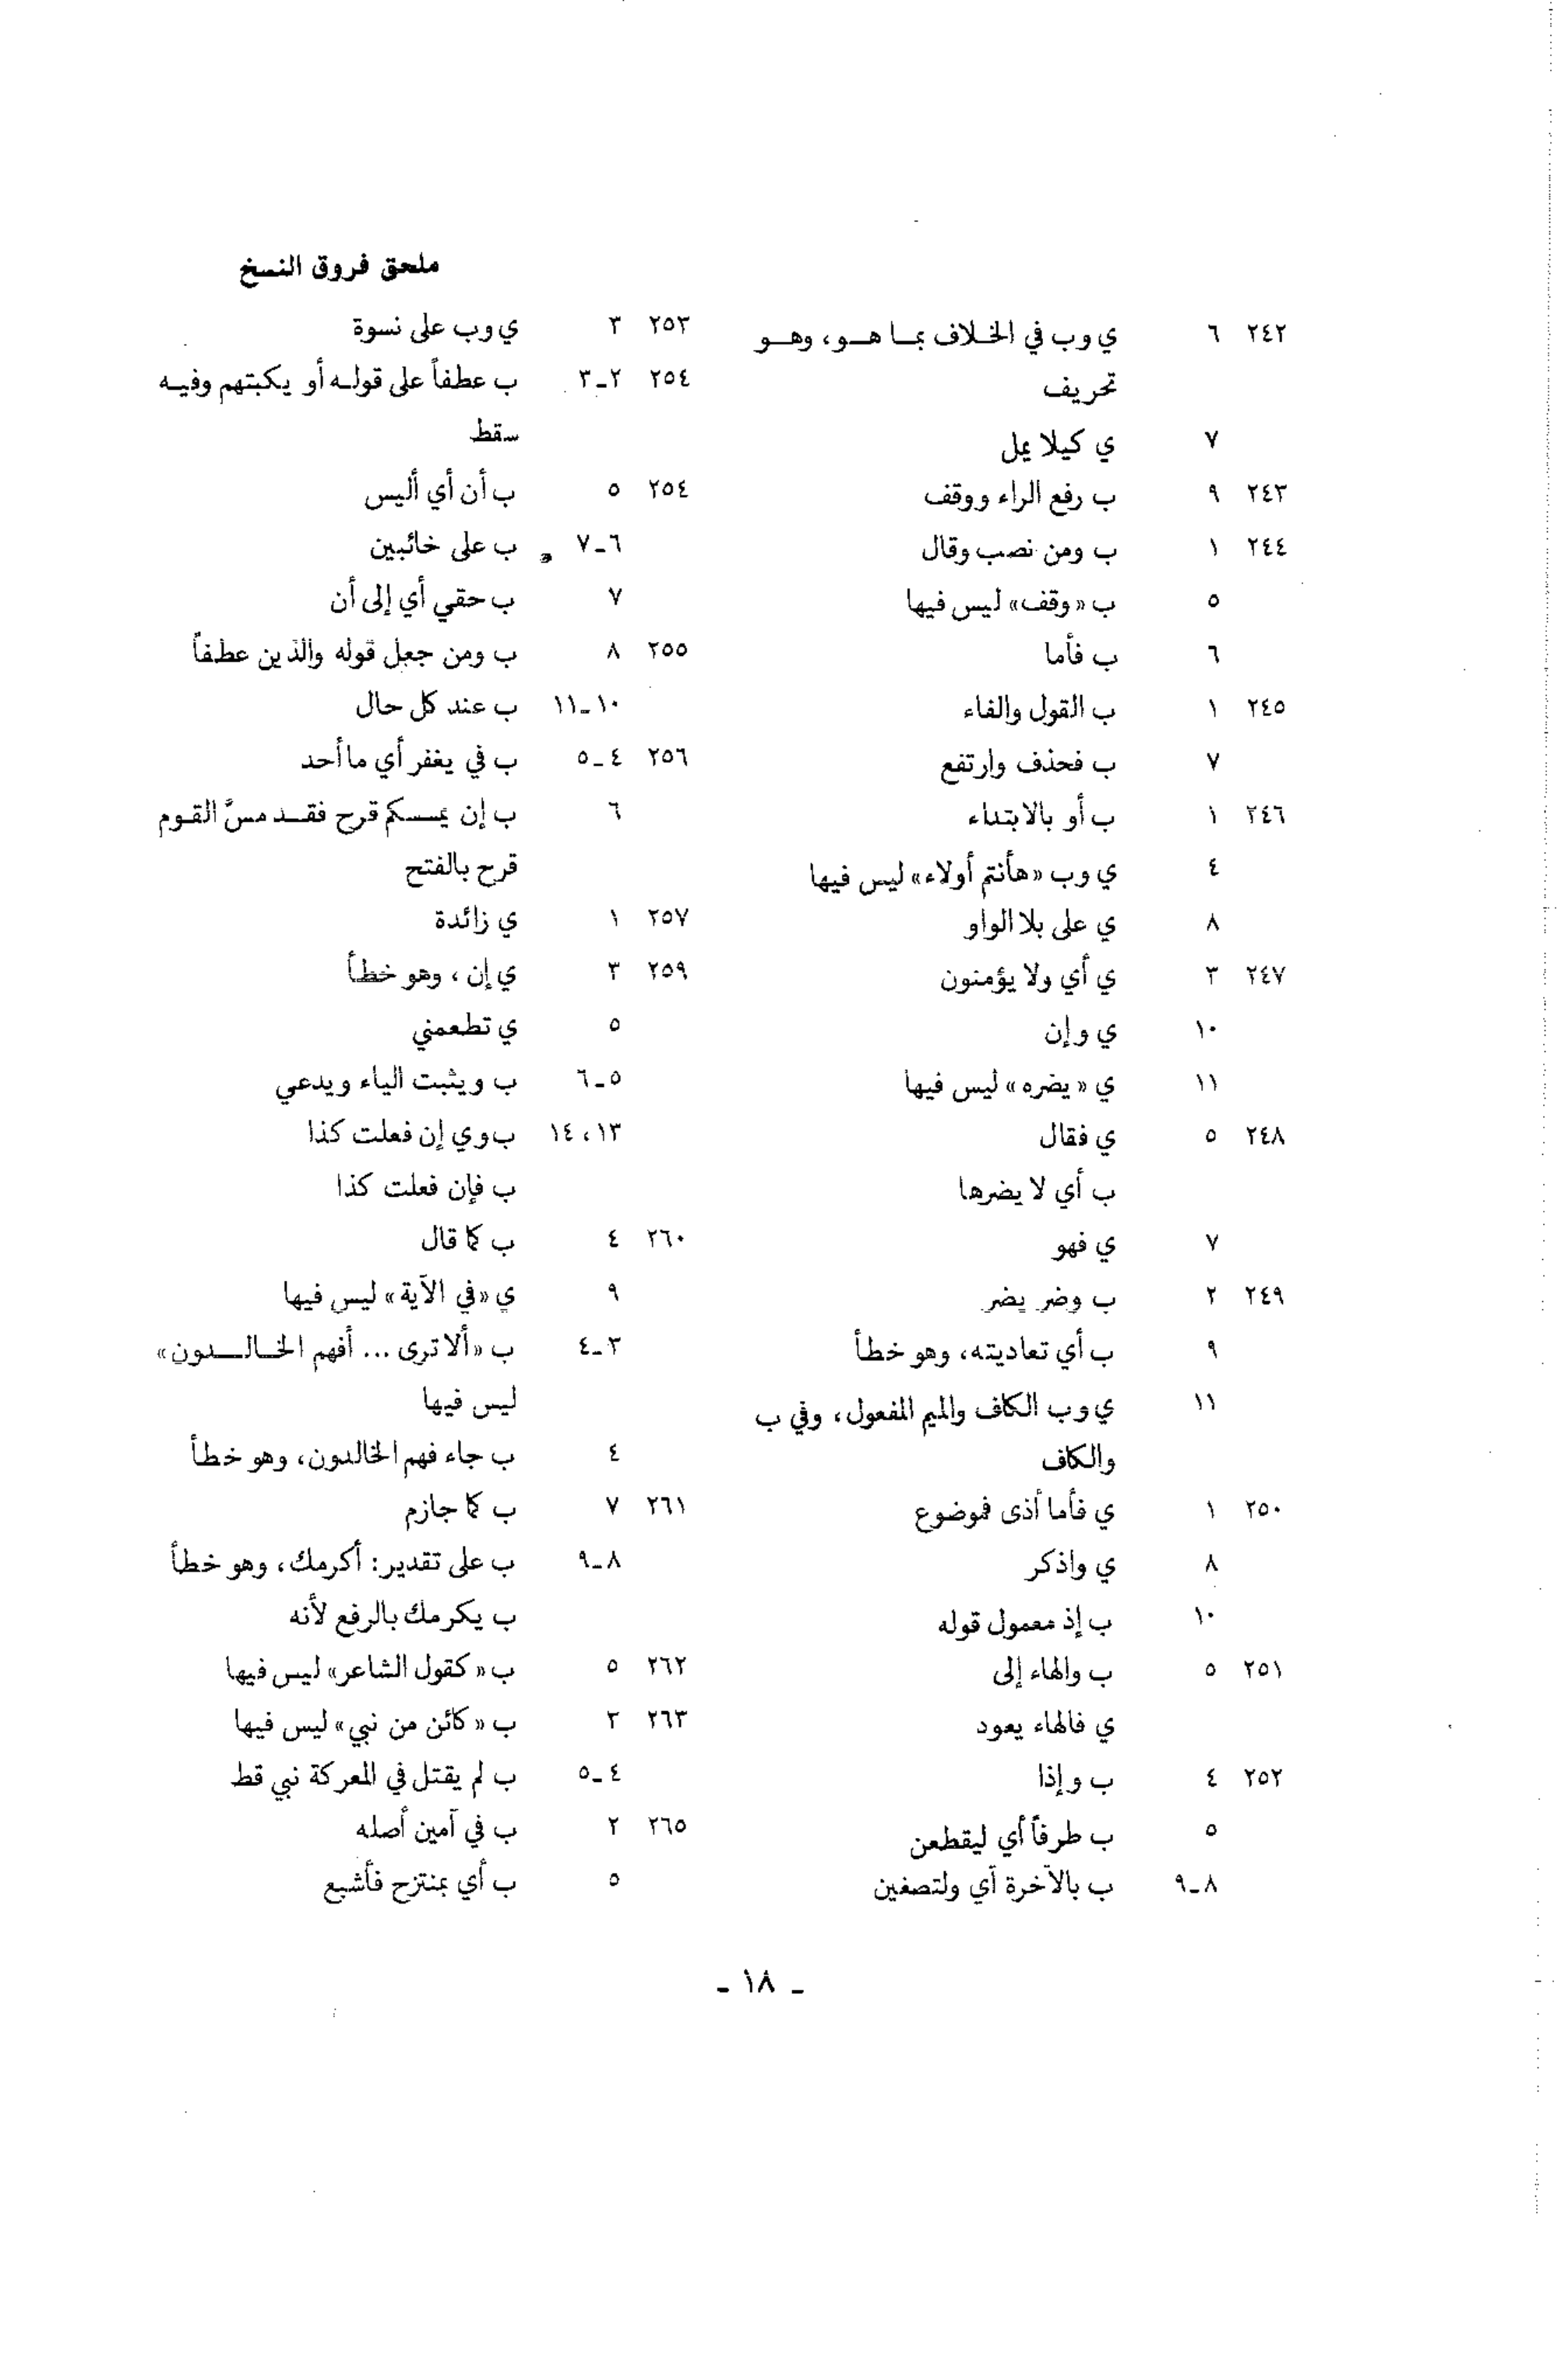 ملحق فروق النسخ
٢٤٢ ٦ ي وب في الخلاف بما هو، وهو
تحريف
٧ ي كيلا يمل
٢٤٣ ٩ ب رفع الراء ووقف
٢٤٤ ١ ب ومن نصب وقال
٥ ب «وقف» ليس فيها
٦ ب فأما
٢٤٥ ١ ب القول والفاء
٧ ب فحذف وارتفع
٢٤٦ ١ ب أو بالابتداء
٤ ي وب «هأنتم أولاء» ليس فيها
٨ ي على بلا الواو
٢٤٧ ٣ ي أي ولا يؤمنون
١٠ ي وإن
١١ ي «يضره» ليس فيها
٢٤٨ ٥ ي فقال
ب أي لا يضرها
٧ ي فهو
٢٤٩ ٢ ب وضر يضر
٩ ب أي تعاديته، وهو خطأ
١١ ي وب الكاف والميم المفعول، وفي ب
والكاف
٢٥٠ ١ ي فأما أذى فموضوع
٨ ي واذكر
١٠ ب إذ معمول قوله
٢٥١ ٥ ب والهاء إلى
ي فالهاء يعود
٢٥٢ ٤ ب وإذا
٥ ب طرفاً أي ليقطعن
٨ـ٩ ب بالآخرة أي ولتصغين
٢٥٣ ٣ ي وب على نسوة
٢٥٤ ٢ـ٣ ب عطفاً على قوله أو يكبتهم وفيه
سقط
٢٥٤ ٥ ب أن أي أليس
٦ـ٧ ب على خائبين
٧ ب حقي أي إلى أن
٢٥٥ ٨ ب ومن جعل قوله والذين عطفاً
١٠ـ١١ ب عند كل حال
٢٥٦ ٤ـ٥ ب في يغفر أي ما أحد
٦ ب إن يمسسكم قرح فقد مسَّ القوم
قرح بالفتح
٢٥٧ ١ ي زائدة
٢٥٩ ٣ ي إن، وهو خطأ
٥ ي تطعمني
٥ـ٦ ب ويثبت الياء ويدعي
١٣، ١٤ ب وي إن فعلت كذا
ب فإن فعلت كذا
٢٦٠ ٤ ب كما قال
٩ ي «في الآية» ليس فيها
٣ـ٤ ب «ألا ترى ... أفهم الخالدون»
ليس فيها
٤ ب جاء فهم الخالدون، وهو خطأ
٢٦١ ٧ ب كما جازم
٨ـ٩ ب على تقدير: أكرمك، وهو خطأ
ب يكرمك بالرفع لأنه
٢٦٢ ٥ ب «كقول الشاعر» ليس فيها
٢٦٣ ٢ ب «كائن من نبي» ليس فيها
٤ـ٥ ب لم يقتل في المعركة نبي قط
٢٦٥ ٢ ب في آمين أصله
٥ ب أي بمنتزح فأشبع
ـ ١٨ ـ